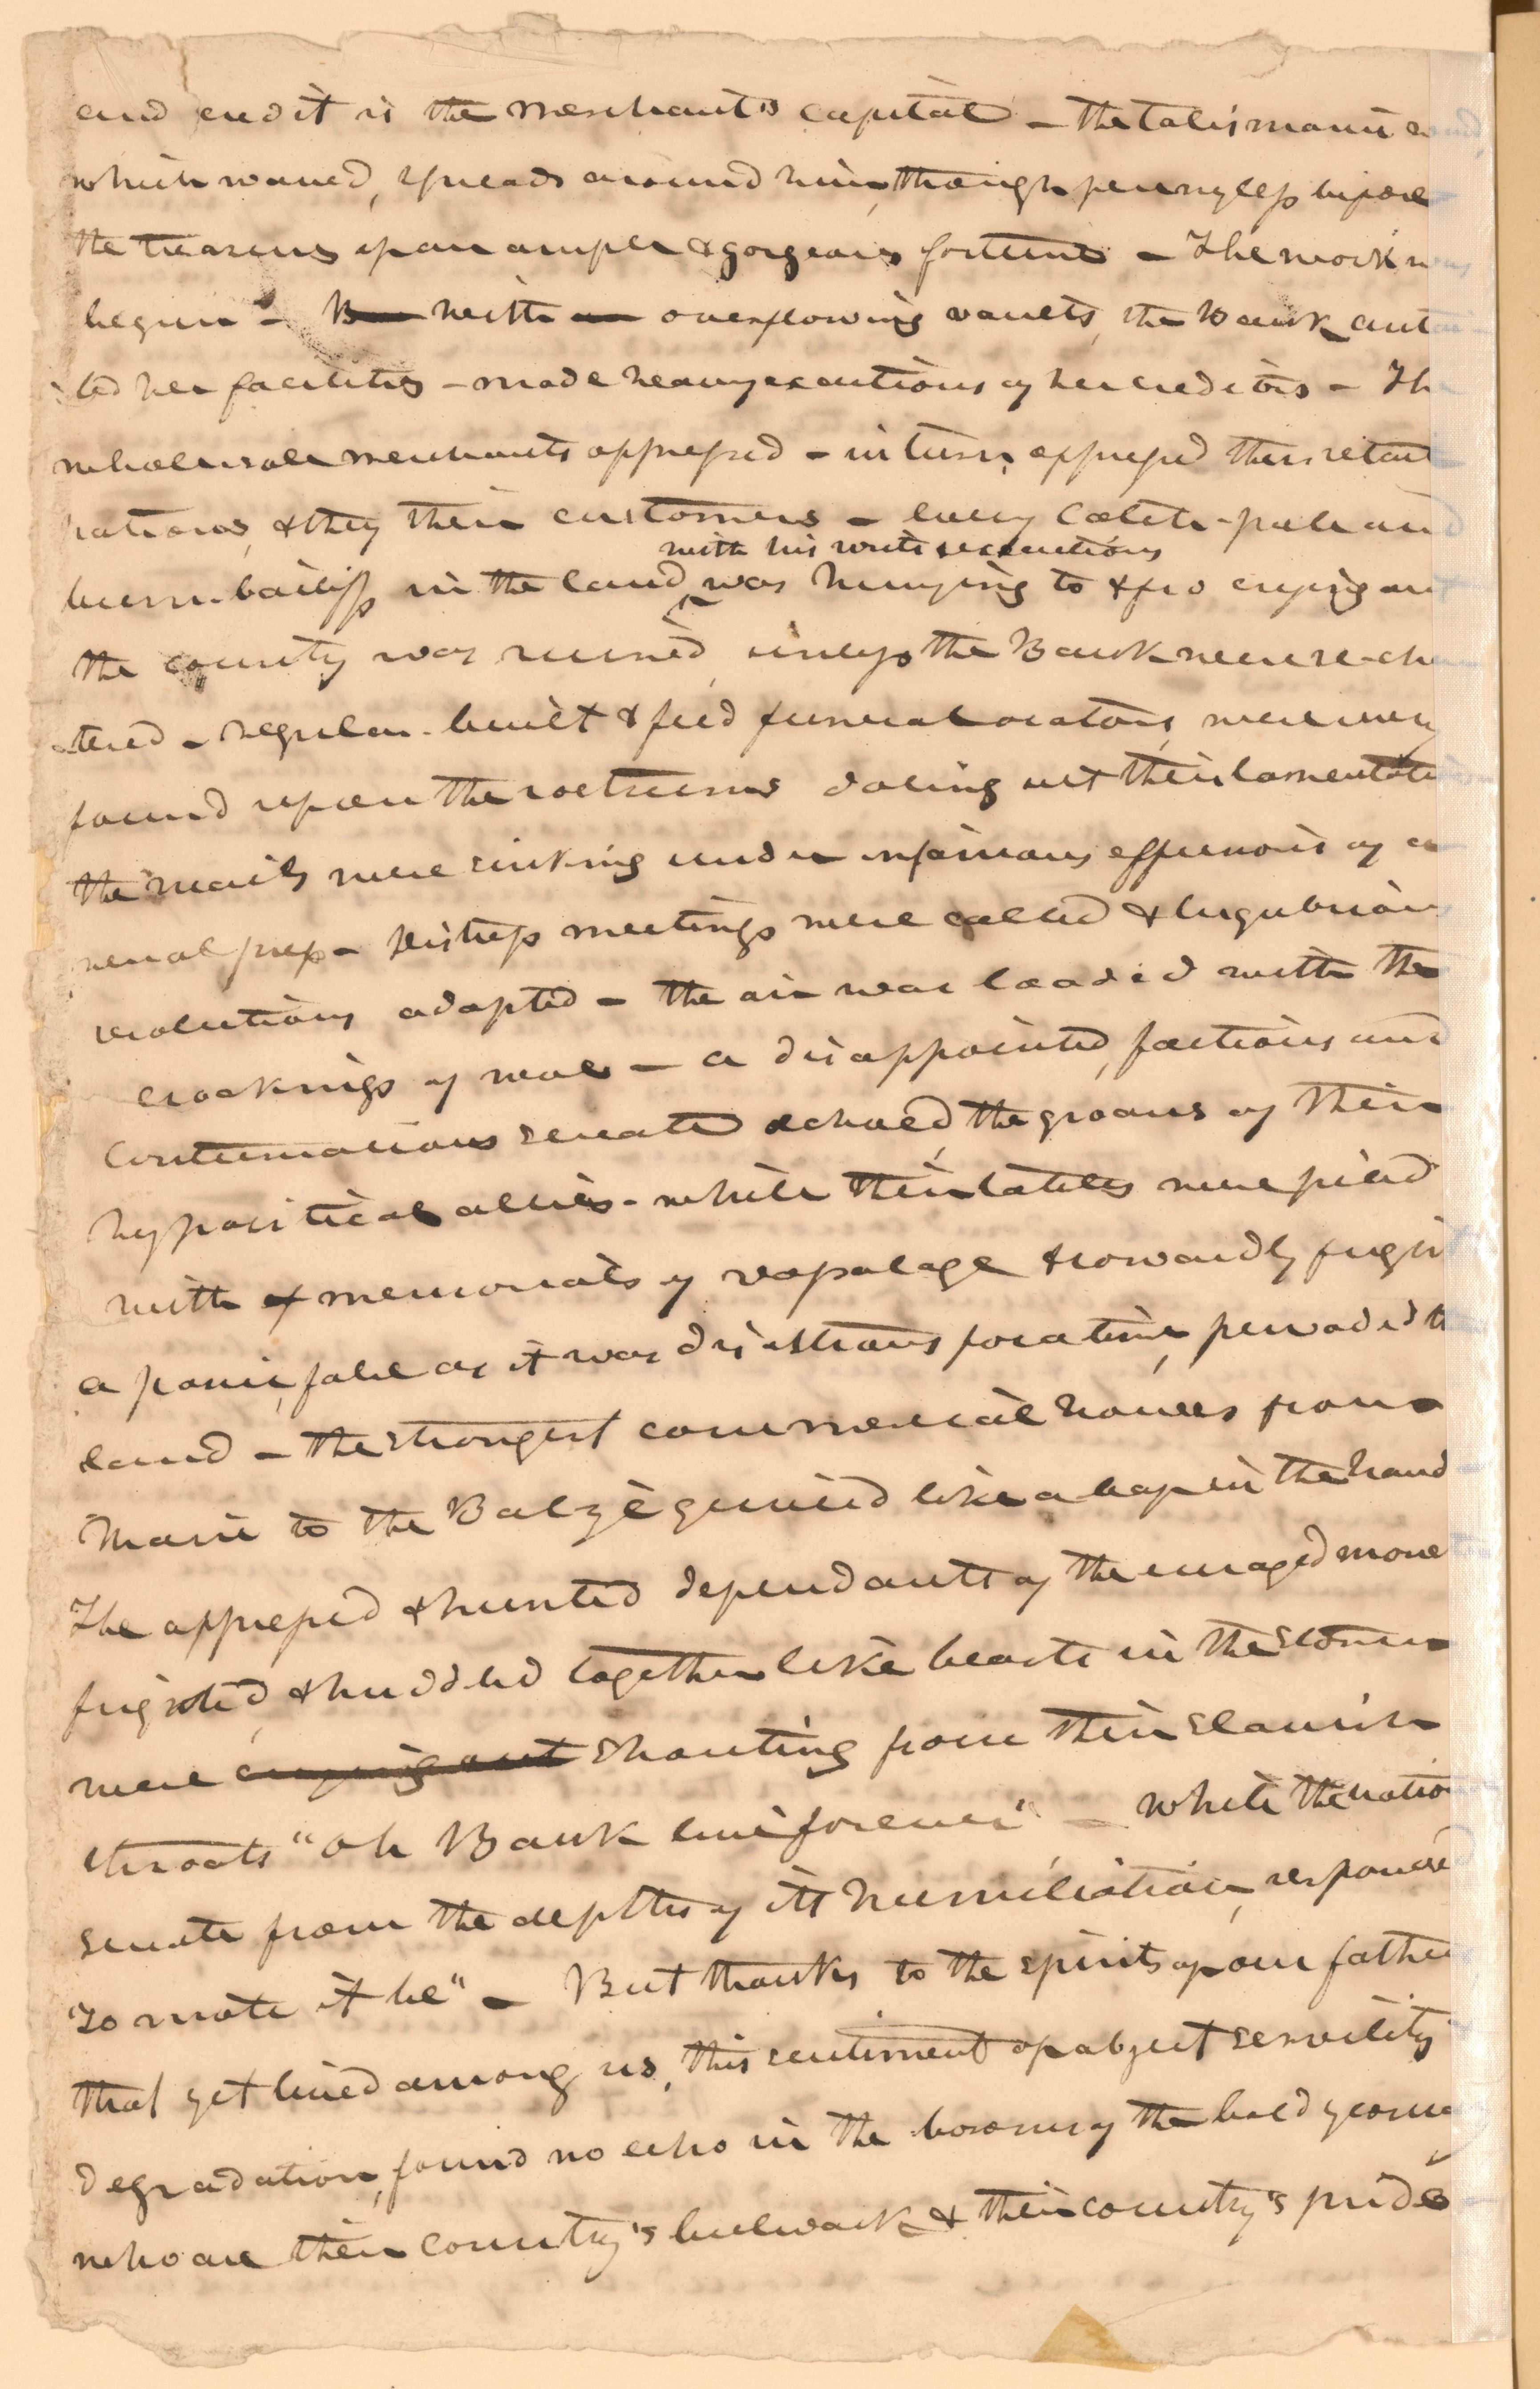 and credit is the merchant's capital – the talismanic
which waved, spreads around him, though pennyless before
the treasures of an ample & gorgeous fortune – The work w
begun – B with overflowing vaults, the Bank
ted her facilities – made heavy exactions of her creditors – Th
wholesale merchants oppressed – in turn, oppressed their retail
patrons, & they their customers – every Catch-pole an
with his writs & executions
bum-bailiff in the land, was hurrying to & fro crying an
the country was ruined, unless the Bank were re-cha
tered – regular-built & fee'd funeral orators, were
found upon the rostrums doling out their lamentati
the mails were sinking under infamous effusions of a
venal press – distress meetings were called & lugubrious
resolutions adopted – the air was loaded with the
croakings of woe – a disappointed, factious and
contumacious senate echoed, the groans of their
hypocritical allies – while their tables were piled
with of memorials of vassalage & cowardly frigh
a panic, false as it was disastrous for a time, pervaded th
land – the strongest commercial houses from
Maine to the Balize quivered like a leaf in the hand
The oppressed & hunted dependants of the enraged mone
frighted, & huddled together like beasts in the storm
were crying out shouting from their slavish
throats "oh Bank live forever" – while the natio
senate from the depths of its humiliation, responded
"so mote it be" – But thanks to the spirits of our father
that yet lived among us, this sentiment of abject servility
degradation, found no echo in the bosoms of the bold yeoma
who are their country's bulwark & their country's pride